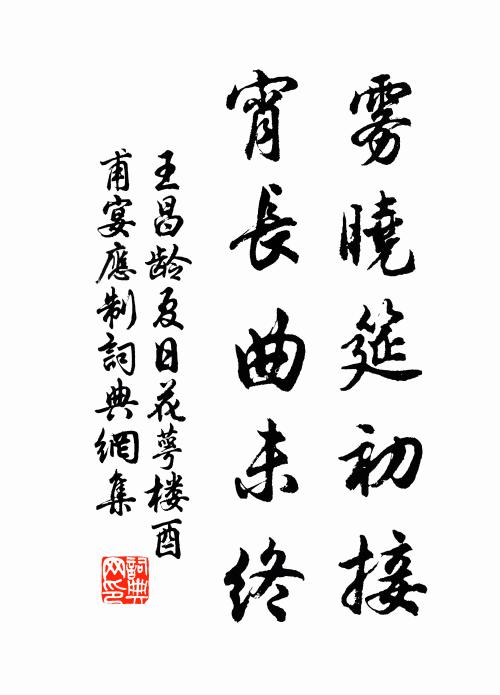 雾曉筵初接
宵長曲未终
王昌龄夏日花萼楼酉
甫宴應制詞典網集
詞典網印